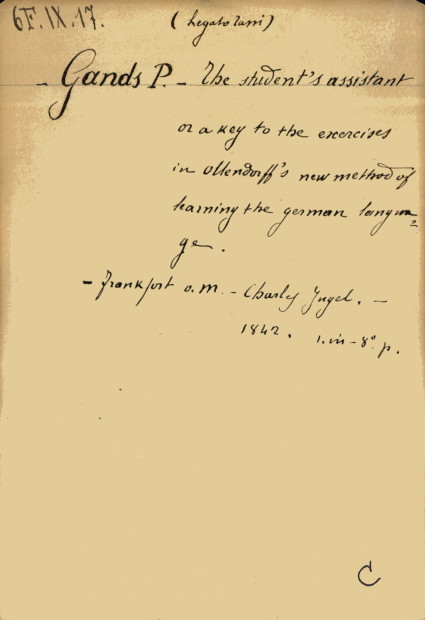 6F.IX.17.
(Legato Zarri)
- Gands P. - The student's assistant
or a key to the exercises
in Ollendorff's new method of
learning the german langua=
ge.
- Frankfort o. M. - Charles Jugel. -
1842. 1. in - 8° p.
C